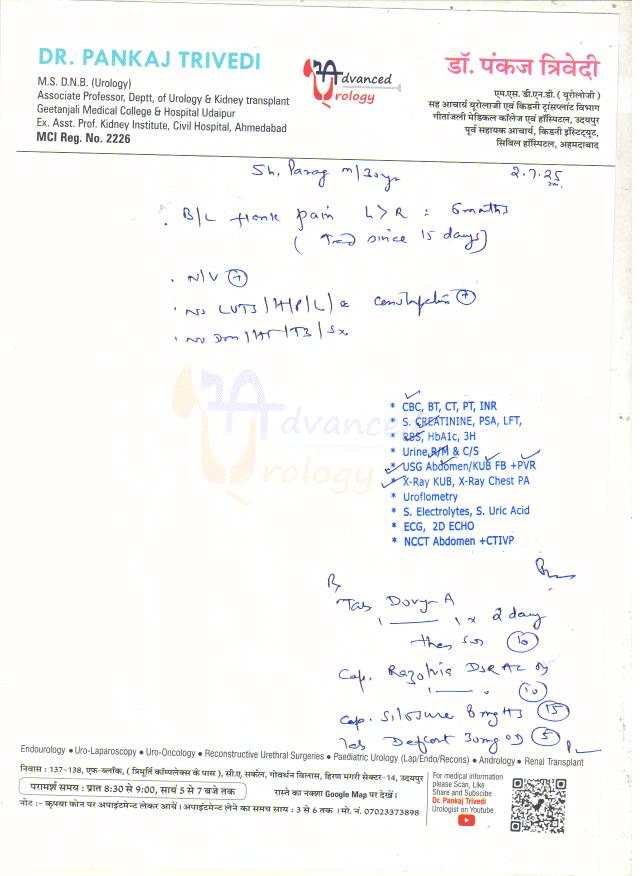 DR. PANKAJ TRIVEDI
M.S. D.N.B. (Urology)
Associate Professor, Deptt, of Urology & Kidney transplant
Geetanjali Medical College & Hospital Udaipur
Ex. Asst. Prof. Kidney Institute, Civil Hospital, Ahmedabad
MCI Reg. No. 2226
Advanced
Urology
डॉ. पंकज त्रिवेदी
एम.एस. डी.एन.डी. ( यूरोलोजी )
सह आचार्य यूरोलोजी एवं किडनी ट्रांसप्लांट विभाग
गीतांजली मेडिकल कॉलेज एवं हॉस्पिटल, उदयपुर
पूर्व सहायक आचार्य, किडनी इंस्टिट्यूट,
सिविल हॉस्पिटल, अहमदाबाद
Sh. Parag m/30yr
2.7.25
B/L flank pain L>R : 6 months
( since 15 days)
N/V +
No LUTS/H/P/L/ +
Advanced
Urology
* CBC, BT, CT, PT, INR
* S. CREATININE, PSA, LFT,
* RBS, HbA1c, 3H
* Urine R/M & C/S
* USG Abdomen/KUB FB +PVR
* X-Ray KUB, X-Ray Chest PA
* Uroflometry
* S. Electrolytes, S. Uric Acid
* ECG, 2D ECHO
* NCCT Abdomen +CTIVP
Rx
Tab A
1 — 1 x 2 days
then SOS 10
Cap. DSR AC OD
1 — . 10
Cap. Silosure 8mg HS 15
Tab Defcort 30mg OD 5
Endourology ● Uro-Laparoscopy ● Uro-Oncology ● Reconstructive Urethral Surgeries ● Paediatric Urology (Lap/Endo/Recons) ● Andrology ● Renal Transplant
निवास : 137-138, एफ-ब्लॉक, ( त्रिमूर्ति कॉम्पलेक्स के पास ), सी.ए. सर्कल, गोवर्धन विलास, हिरण मगरी सेक्टर-14, उदयपुर
परामर्श समय : प्रात 8:30 से 9:00, सायं 5 से 7 बजे तक
रास्ते का नक्शा Google Map पर देखें।
नोट :- कृपया फोन पर अपाइंटमेन्ट लेकर आयें। अपाइंटमेन्ट लेने का समय सायं : 3 से 6 तक । मो. नं. 07023373898
For medical information
please Scan, Like
Share and Subscibe
Dr. Pankaj Trivedi
Urologist on Youtube